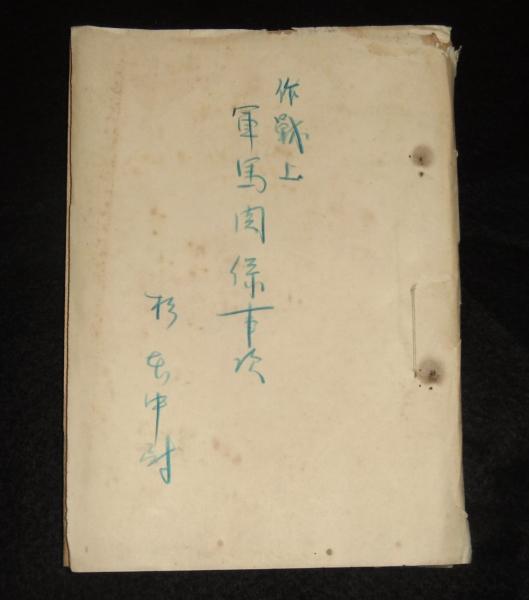 作戦上
軍馬関係事項
杉本中尉